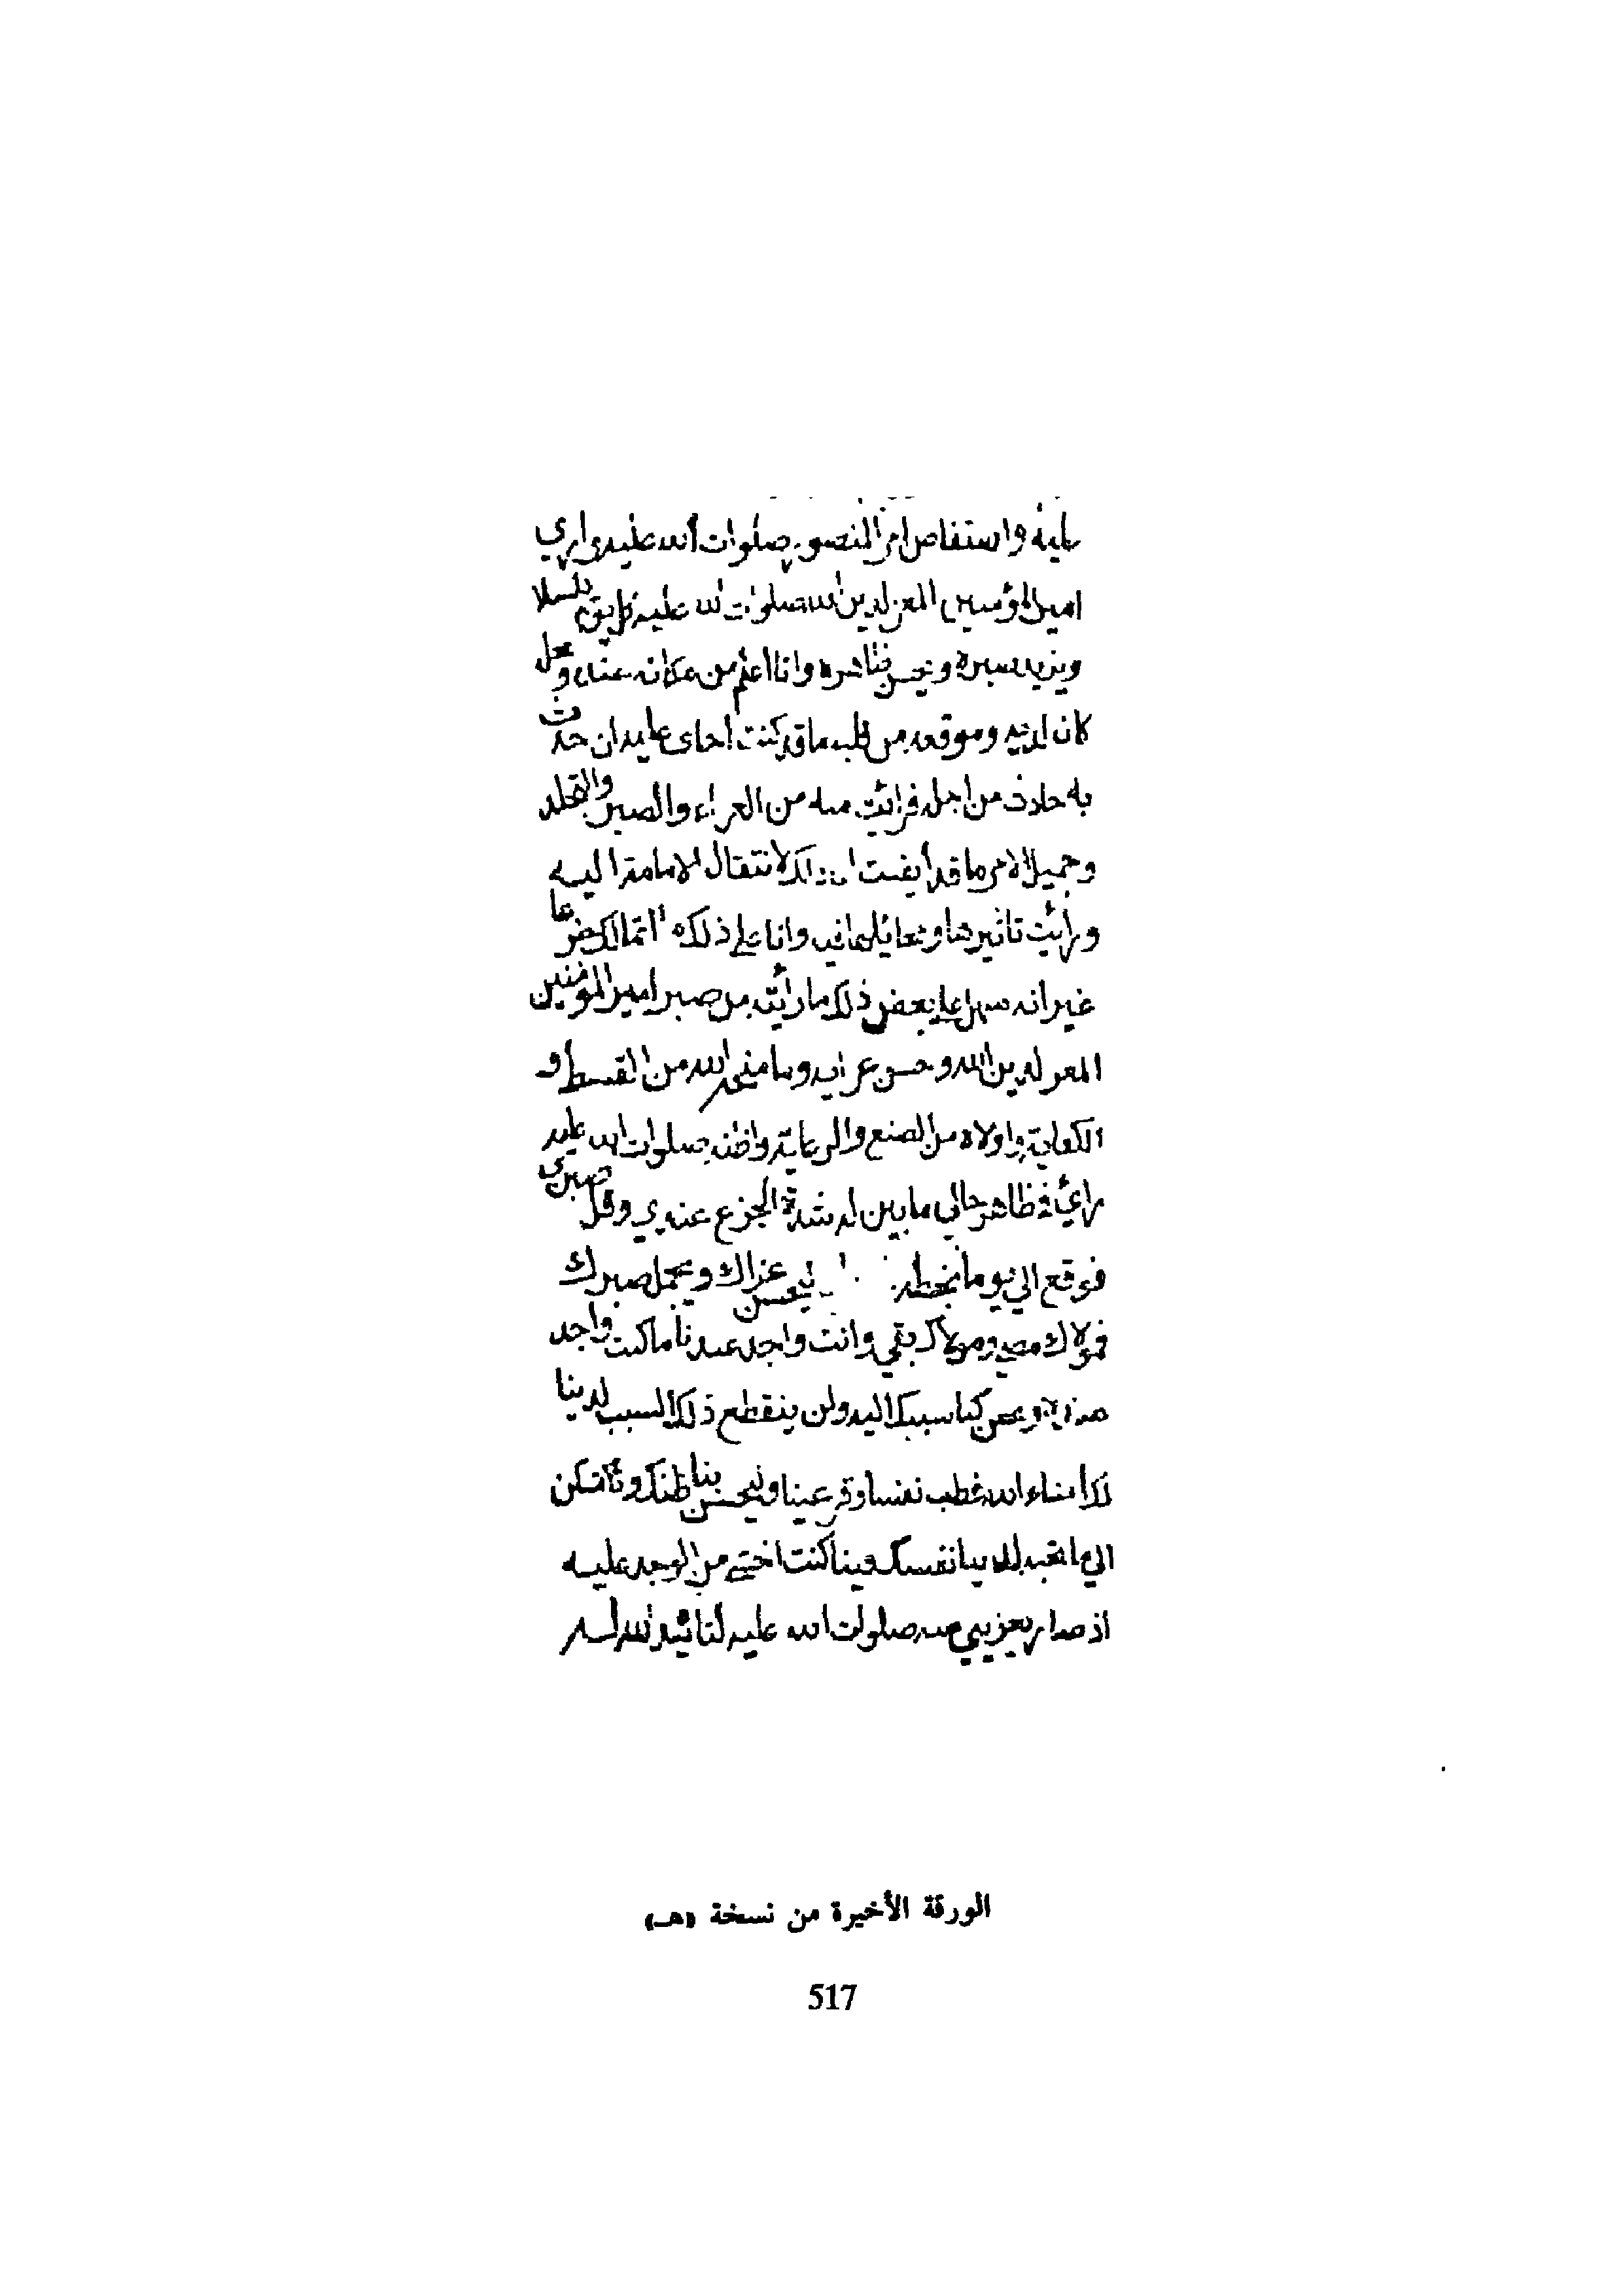 واستفاض امر المنصور صلوات الله عليه واري
امير المؤمنين المعز لدين الله صلوات الله عليه
ويزيد صبره ويحسن ظاهره وانا اعلم من مكانه عنده ومحل
كان لديه وموقعه من قلبه ما قد كنت عليه ان حدث
به حادث من اجله فرائت منه من العزاء والصبر والتجلد
وجميل الامر ما قد أيقنت لانتقال الامامة اليه
ورأيت تاثيرها فيه وانا على ذلك ه اتمالك
غير انه سهل علي بعض ذلك ما رأيته من صبر امير المؤمنين
المعز لدين الله وحسن عزايه وما منحه الله من القسط و
الكفاية واولاه من الصنع والرعاية واظنه صلوات الله عليه
رائ في ظاهر حالي ما بين له شدة الجزع عندي وقل صبري
فوقع الي يوما بخطه ليحسن عزاك ويجمل صبرك
فمولاك مضى ومولاك بقي وانت واجد عندنا ما كنت واجد
عنده ونحن كنا سببك اليه ولن ينقطع ذلك السبب لدينا
لك انشاء الله فطب نفسا وقر عينا وليحسن بنا ظنك ولتسكن
الي ما تحبه لدينا نفسك فبينا كنت اخشى من الوجد عليه
اذ صار يعزيني عنه صلوات الله عليه لتائيد الله له
الورقة الأخيرة من نسخة «هـ»
517